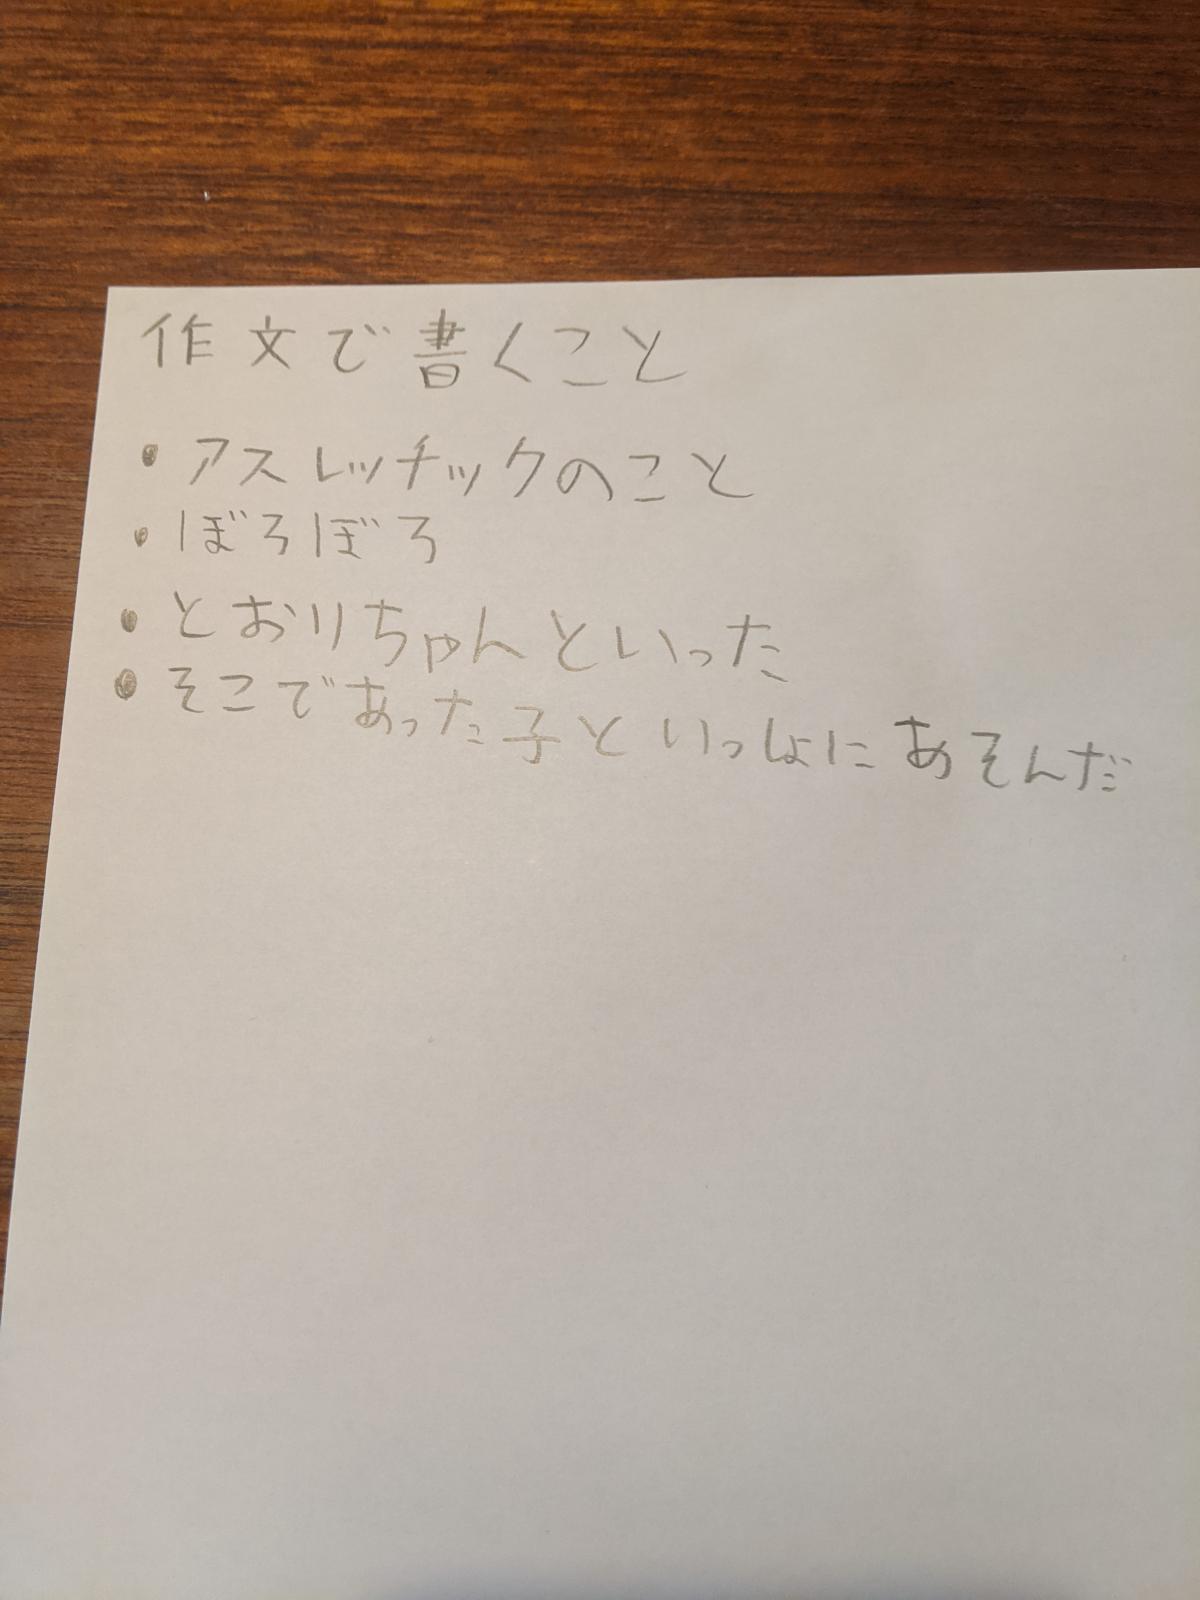 作文で書くこと
・アスレッチックのこと
・ぼろぼろ
・とおりちゃんといった
・そこであった子といっしょにあそんだ